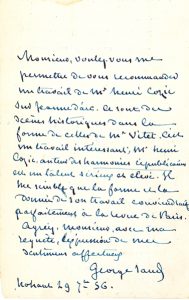 Monsieur, voulez-vous me
permettre de vous recommander
un travail de Mr Henri Cozic
sur Jeanne d'arc. Ce sont des
scènes historiques dans la
forme de celles de Mr Vitet. C'est
un travail intéressant, Mr Henri
Cozic, auteur des harmonies républicaines
est un talent sérieux et élevé. Il
me semble que la forme et la
donnée de son travail conviendraient
parfaitement à la revue de Paris.
Agréez, Monsieur, avec ma
requête, l'expression de mes
sentiments affectueux
George Sand
Nohant 29 7bre 56.